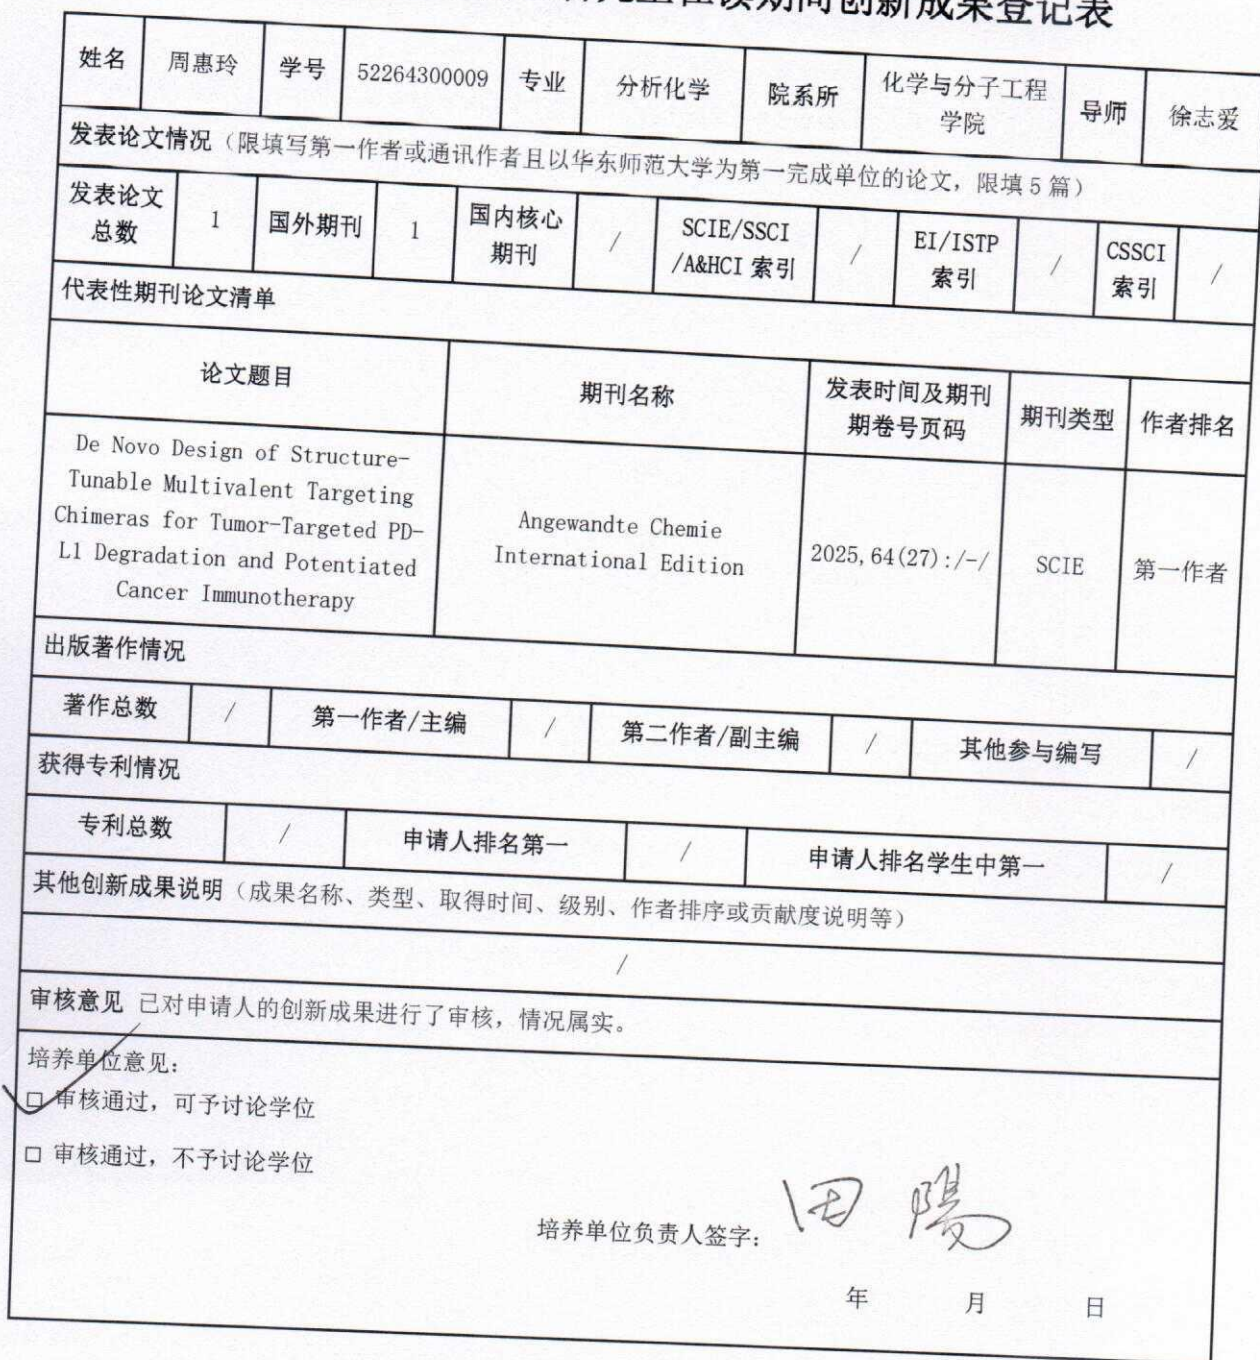 在读期间创新成果登记表
姓名 周惠玲 学号 52264300009 专业 分析化学 院系所 化学与分子工程
学院 导师 徐志爱
发表论文情况（限填写第一作者或通讯作者且以华东师范大学为第一完成单位的论文，限填5篇）
发表论文
总数 1 国外期刊 1 国内核心
期刊 / SCIE/SSCI
/A&HCI 索引 / EI/ISTP
索引 / CSSCI
索引 /
代表性期刊论文清单
论文题目 期刊名称 发表时间及期刊
期卷号页码 期刊类型 作者排名
De Novo Design of Structure-
Tunable Multivalent Targeting
Chimeras for Tumor-Targeted PD-
L1 Degradation and Potentiated
Cancer Immunotherapy
Angewandte Chemie
International Edition
2025,64(27):/-/
SCIE
第一作者
出版著作情况
著作总数 / 第一作者/主编 / 第二作者/副主编 / 其他参与编写 /
获得专利情况
专利总数 / 申请人排名第一 / 申请人排名学生中第一 /
其他创新成果说明（成果名称、类型、取得时间、级别、作者排序或贡献度说明等）
/
审核意见 已对申请人的创新成果进行了审核，情况属实。
培养单位意见：
□ 审核通过，可予讨论学位
□ 审核通过，不予讨论学位
培养单位负责人签字： 田陽
年 月 日